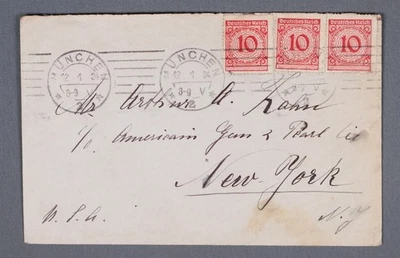 Deutsches Reich Deutsches Reich Deutsches Reich
10 10 10
MÜNCHEN MÜNCHEN
12 1 24 12 1 24
8-9 V 8-9 V
Mr. Arthur A. Kahn
c/o American Gem & Pearl Co
New-York
U.S.A. N.Y